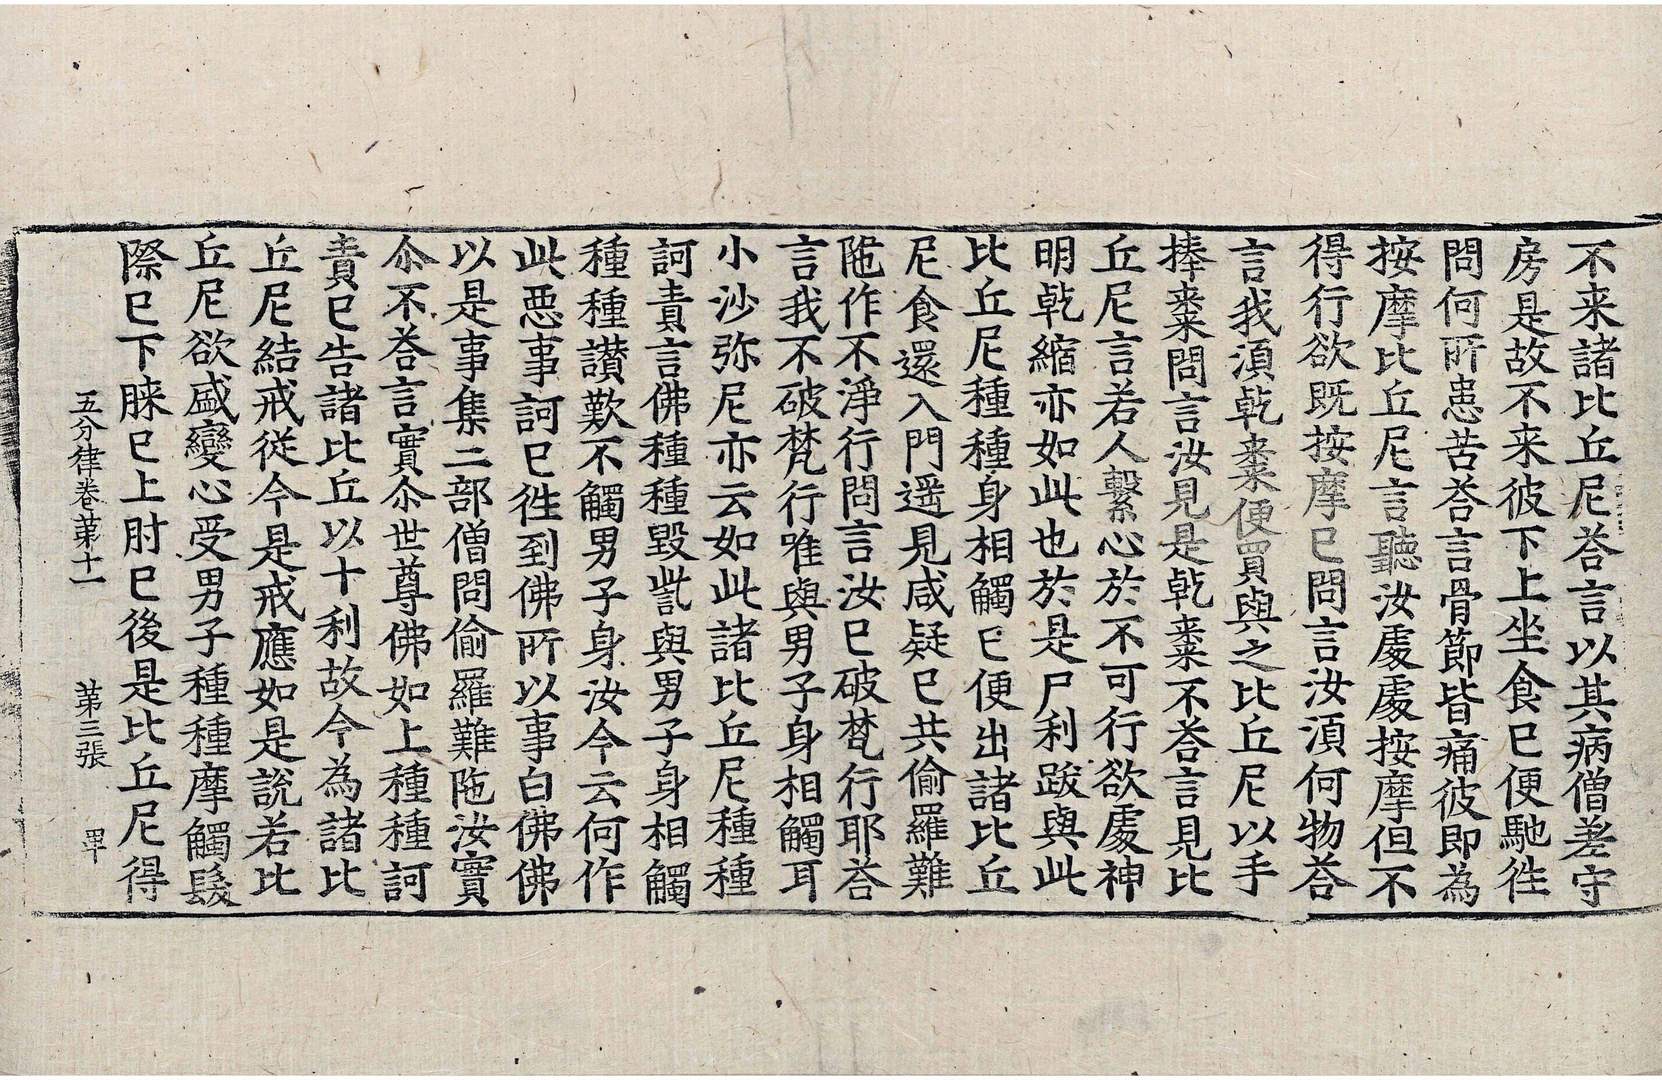 不来諸比丘尼荅言以其病僧差守
房是故不来彼下上坐食已便馳徃
問何所患苦荅言骨節皆痛彼即為
按摩比丘尼言聽汝處處按摩但不
得行欲既按摩已問言汝湏何物荅
言我湏乾棗便買與之比丘尼以手
捧棗問言汝見是乾棗不荅言見比
丘尼言若人繫心於不可行欲處神
明乾縮亦如此也於是尸利跋與此
比丘尼種種身相觸已便出諸比丘
尼食還入門遥見咸疑已共偷羅難
陁作不淨行問言汝已破梵行耶荅
言我不破梵行唯與男子身相觸耳
小沙弥尼亦云如此諸比丘尼種種
訶責言佛種種毀呰與男子身相觸
種種讃歎不觸男子身汝今云何作
此惡事訶已徃到佛所以事白佛佛
以是事集二部僧問偷羅難陁汝實
尒不荅言實尒世尊佛如上種種訶
責已告諸比丘以十利故今為諸比
丘尼結戒從今是戒應如是說若比
丘尼欲盛變心受男子種種摩觸髮
際已下䐐已上肘已後是比丘尼得
五分律卷苐十一 苐三張